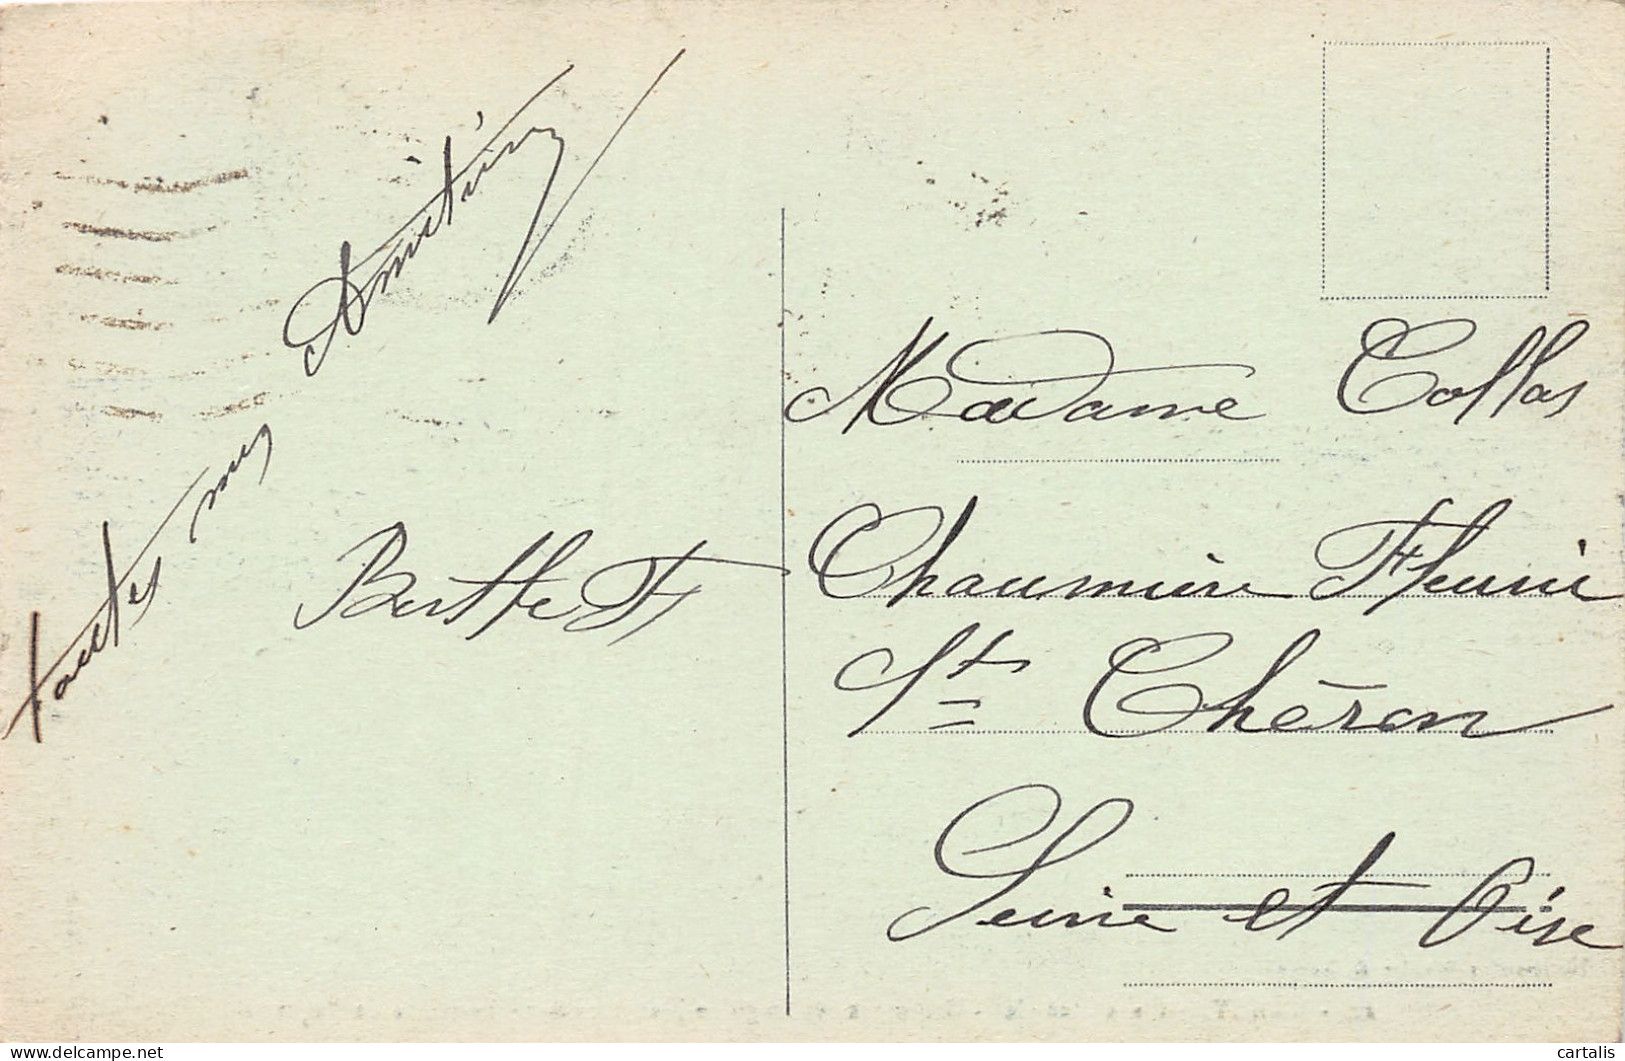 toutes mes
Amitiés
Berthe F
Madame Collas
Chaumière Fleurie
St Chéron
Seine et Oise
delcampe.net
cartalis